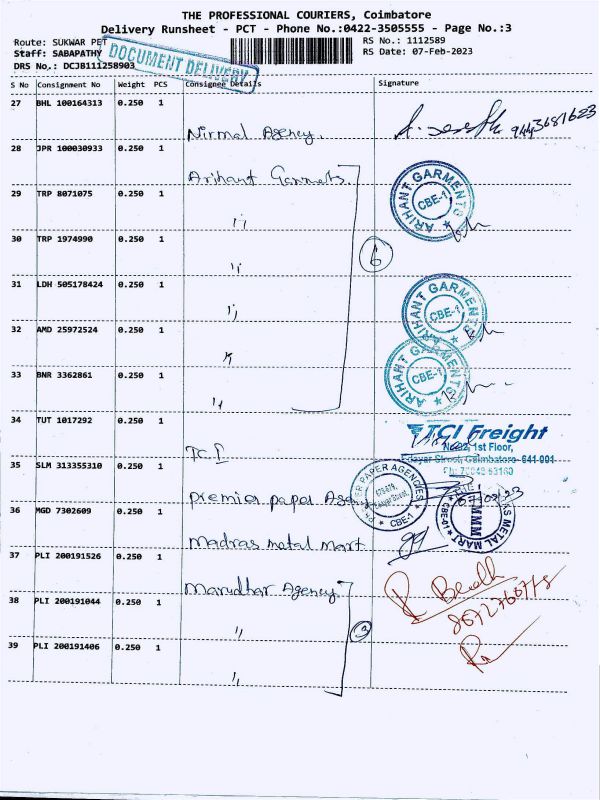 THE PROFESSIONAL COURIERS, Coimbatore
Delivery Runsheet - PCT - Phone No.:0422-3505555 - Page No.:3
Route: SUKWAR PET
RS No.: 1112589
Staff: SABAPATHY
RS Date: 07-Feb-2023
DRS No.: DCJB111258903
DOCUMENT DELIVERY
S No Consignment No Weight PCS Consignee Details Signature
27 BHL 100164313 0.250 1
Nirmal Agency.
28 JPR 100030933 0.250 1
Arihant
ARIHANT GARMENTS
CBE-1
29 TRP 8071075 0.250 1
"
30 TRP 1974990 0.250 1
6
"
31 LDH 505178424 0.250 1
ARIHANT GARMENTS
CBE-1
"
32 AMD 25972524 0.250 1
"
ARIHANT GARMENTS
CBE-1
33 BNR 3362861 0.250 1
"
34 TUT 1017292 0.250 1
TCI Freight
1st Floor,
35 SLM 313355310 0.250 1
Premier paper
PAPER AGENCIES
CBE-1
36 MGD 7302609 0.250 1
Madras metal mart
METAL MART
MMM
CBE-01
37 PLI 200191526 0.250 1
Marudhar Agency
38 PLI 200191044 0.250 1
"
39 PLI 200191406 0.250 1
"